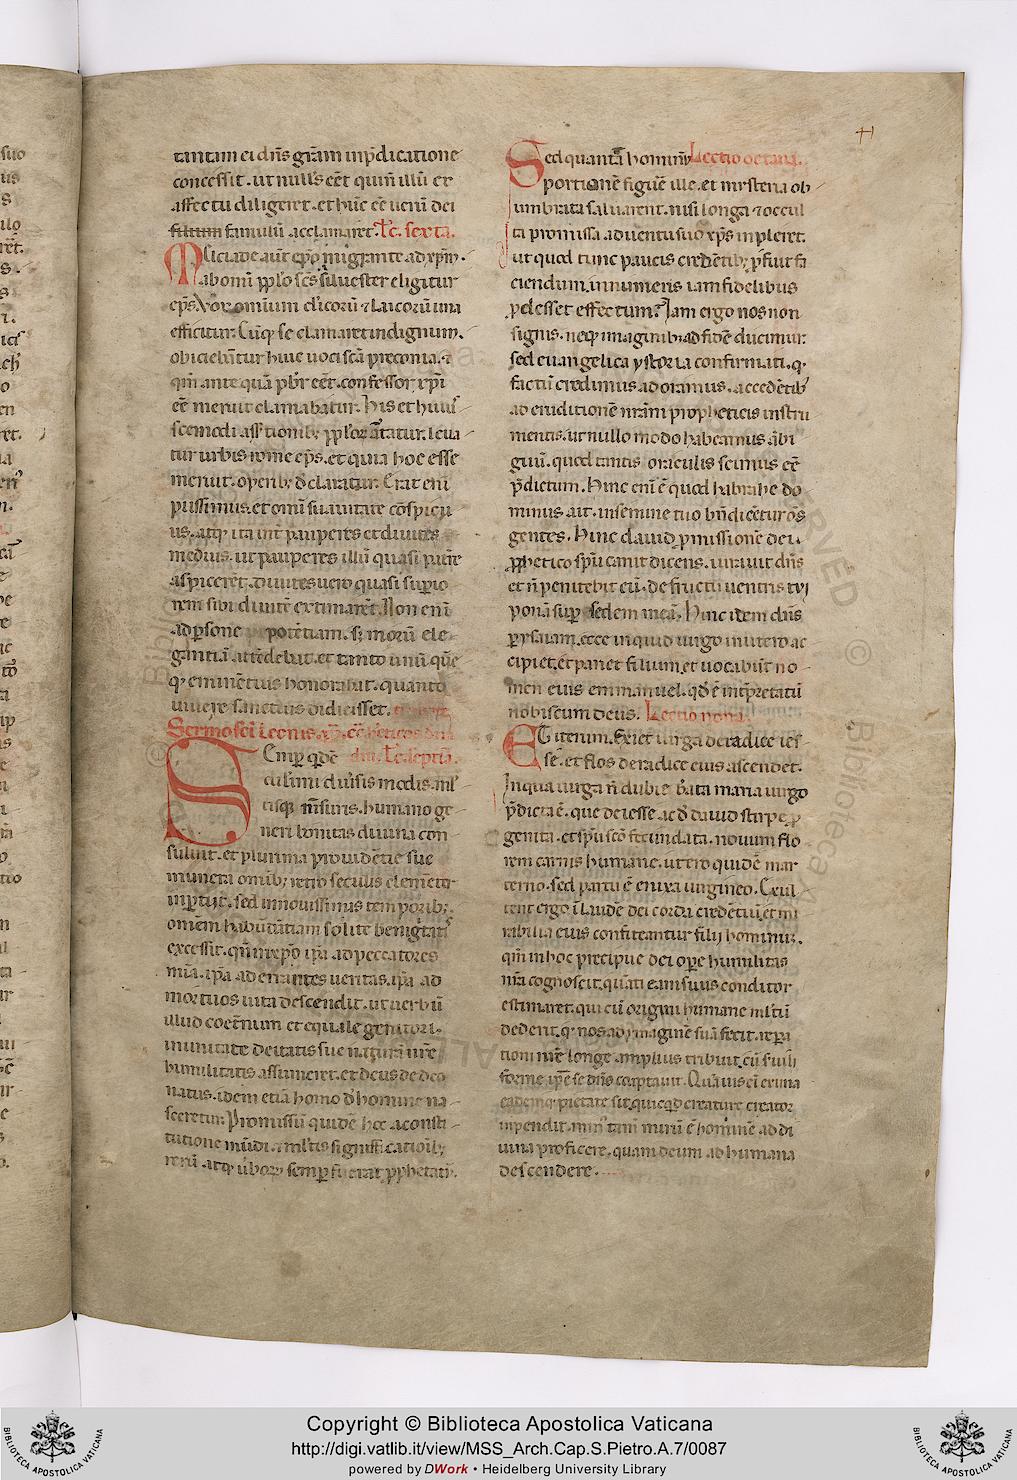 tantam ei dñs gr̃am in p̃dicatione
concessit. ut null's eet quin illũ ex
affectu diligeret. et hũc eẽ uerũ dei
filium famulũ acclamaret. Lc̃. sexta.
Melciade aut̃ ep̃o migrante ad xp̃m.
ab omni pplo scs̃ siluester eligitur
ep̃s. Vox omnium cl'icorũ ⁊ laicorũ una
efficitur. Cũq; se clamaret indignum.
obiciebãtur huic uoci sc̃a preconia. ⁊
qm̃ ante quã pbr̃ eet. confessor xp̃i
eẽ meruit clamabatur. His et huius
scemodi
tur urbis rome ep̃s. et quia hoc esse
meruit. operib; declaratur. Erat eni
piissimus. et omni suauitate cõspicu
us. atq; ita int̃ pauperes et diuites
medius. ut pauperes illũ quasi patrẽ
aspicerẽt. diuites uero quasi sup̱io
rem sibi diuitẽ extimarẽt. Non eni
ad p̱sone potẽtiam. s; morũ ele
gantiã attẽdebat. et tanto unũ quẽ
q; eminẽtius honorabat. quanto
uiuere sanctius didicisset.
Sermo sc̃i Leonis
dñi. Lc̃. septĩa.
SEmp̱ qdẽ
diuersis modis. ml'
tisq; mẽsuris. humano ge
neri bonitas diuina con
suluit. et plurima prouidẽtie sue
munera omib; retro seculis clemẽter
imp̱tiit. sed in nouissimis temporib;
omẽm habũdãtiam solite benig̃tatis
excessit. qñ in xp̃o ip̃a ad peccatores
mĩa. ip̃a ad errantes ueritas. ip̃a ad
mortuos uita descendit. ut uerbũ
illud coetnum et equale genitori.
in unitate deitatis sue naturã nr̃e
humilitatis assumeret. et deus de deo
natus. idem etiã homo d' homine na
sceretur. Promissũ quidẽ hoc a consti
tutione mũdi. ⁊ ml'tis significatiõib;
rerũ. atq; uerborũ semp̱ fuerat pphetatũ.
Sed quantã hominũ Lectio octaua.
portionẽ figure ille. et mysteria ob
umbrata saluarent. nisi longa ⁊ occul
ta promissa aduentu suo xp̃s inpleret.
ut quod tunc paucis credẽtib; p̱fuit fa
ciendum. innumeris iam fidelibus
p̱desset effectum? Iam ergo nos non
signis. neq; imaginib; ad fidẽ ducimur.
sed euangelica ystoria confirmati. q
factũ credimus adoramus. accedẽtib;
ad eruditionẽ nr̃am propheticis instru
mentis. ut nullo modo habeamus ãbi
guũ. quod tantis oraculis scimus eẽ
p̃dictum. Hinc eni ẽ quod habrahe do
minus ait. in semine tuo bñdicẽtur oẽs
gentes. Hinc dauid p̱missionẽ dei.
pphetico spũ canit dicens. iurauit dñs
et ñ penitebit eũ. de fructu uentris tui
ponã sup̱ sedem meã. Hinc idem dñs
p̱ ysaiam. ecce inquid uirgo in utero ac
cipiet. et pariet filium. et uocabit̃ no
men eius emmanuel. qd ẽ int̃pretatũ
nobiscum deus. Lectio nona.
ET iterum. Exiet uirga de radice ies
se. et flos de radice eius ascendet.
In qua uirga ñ dubie b̃ata maria uirgo
p̃dicta ẽ. que de iesse. ac d' dauid stirpe p̱
genita. et spũ sco fecundata. nouum flo
rem carnis humane. utero quidẽ mar
terno. sed partu ẽ enixa uirgineo. Exul
tent ergo ĩ laude dei corda credẽtiũ. et mi
rabilia eius confiteantur filii hominũ.
qm̃ in hoc precipue dei ope humilitas
nr̃a cognoscit. quãti eam suus conditor
estimaret. qui cũ origini humane ml'tũ
dederit. q nos ad ymaginẽ suã fecit. rep̱a
tioni nr̃e longe amplius tribuit. cũ s'uili
forme ip̃e se dñs coaptauit. Quãuis eni ex una
eademq; pietate sit. quicq̃d creature creator
inpendit. min' tam mirũ ẽ hominẽ ad di
uina proficere. quam deum ad humana
descendere.
Copyright © Biblioteca Apostolica Vaticana
http://digi.vatlib.it/view/MSS_Arch.Cap.S.Pietro.A.7/0087
powered by DWork • Heidelberg University Library
BIBLIOTECA APOSTOLICA VATICANA
BIBLIOTECA APOSTOLICA VATICANA